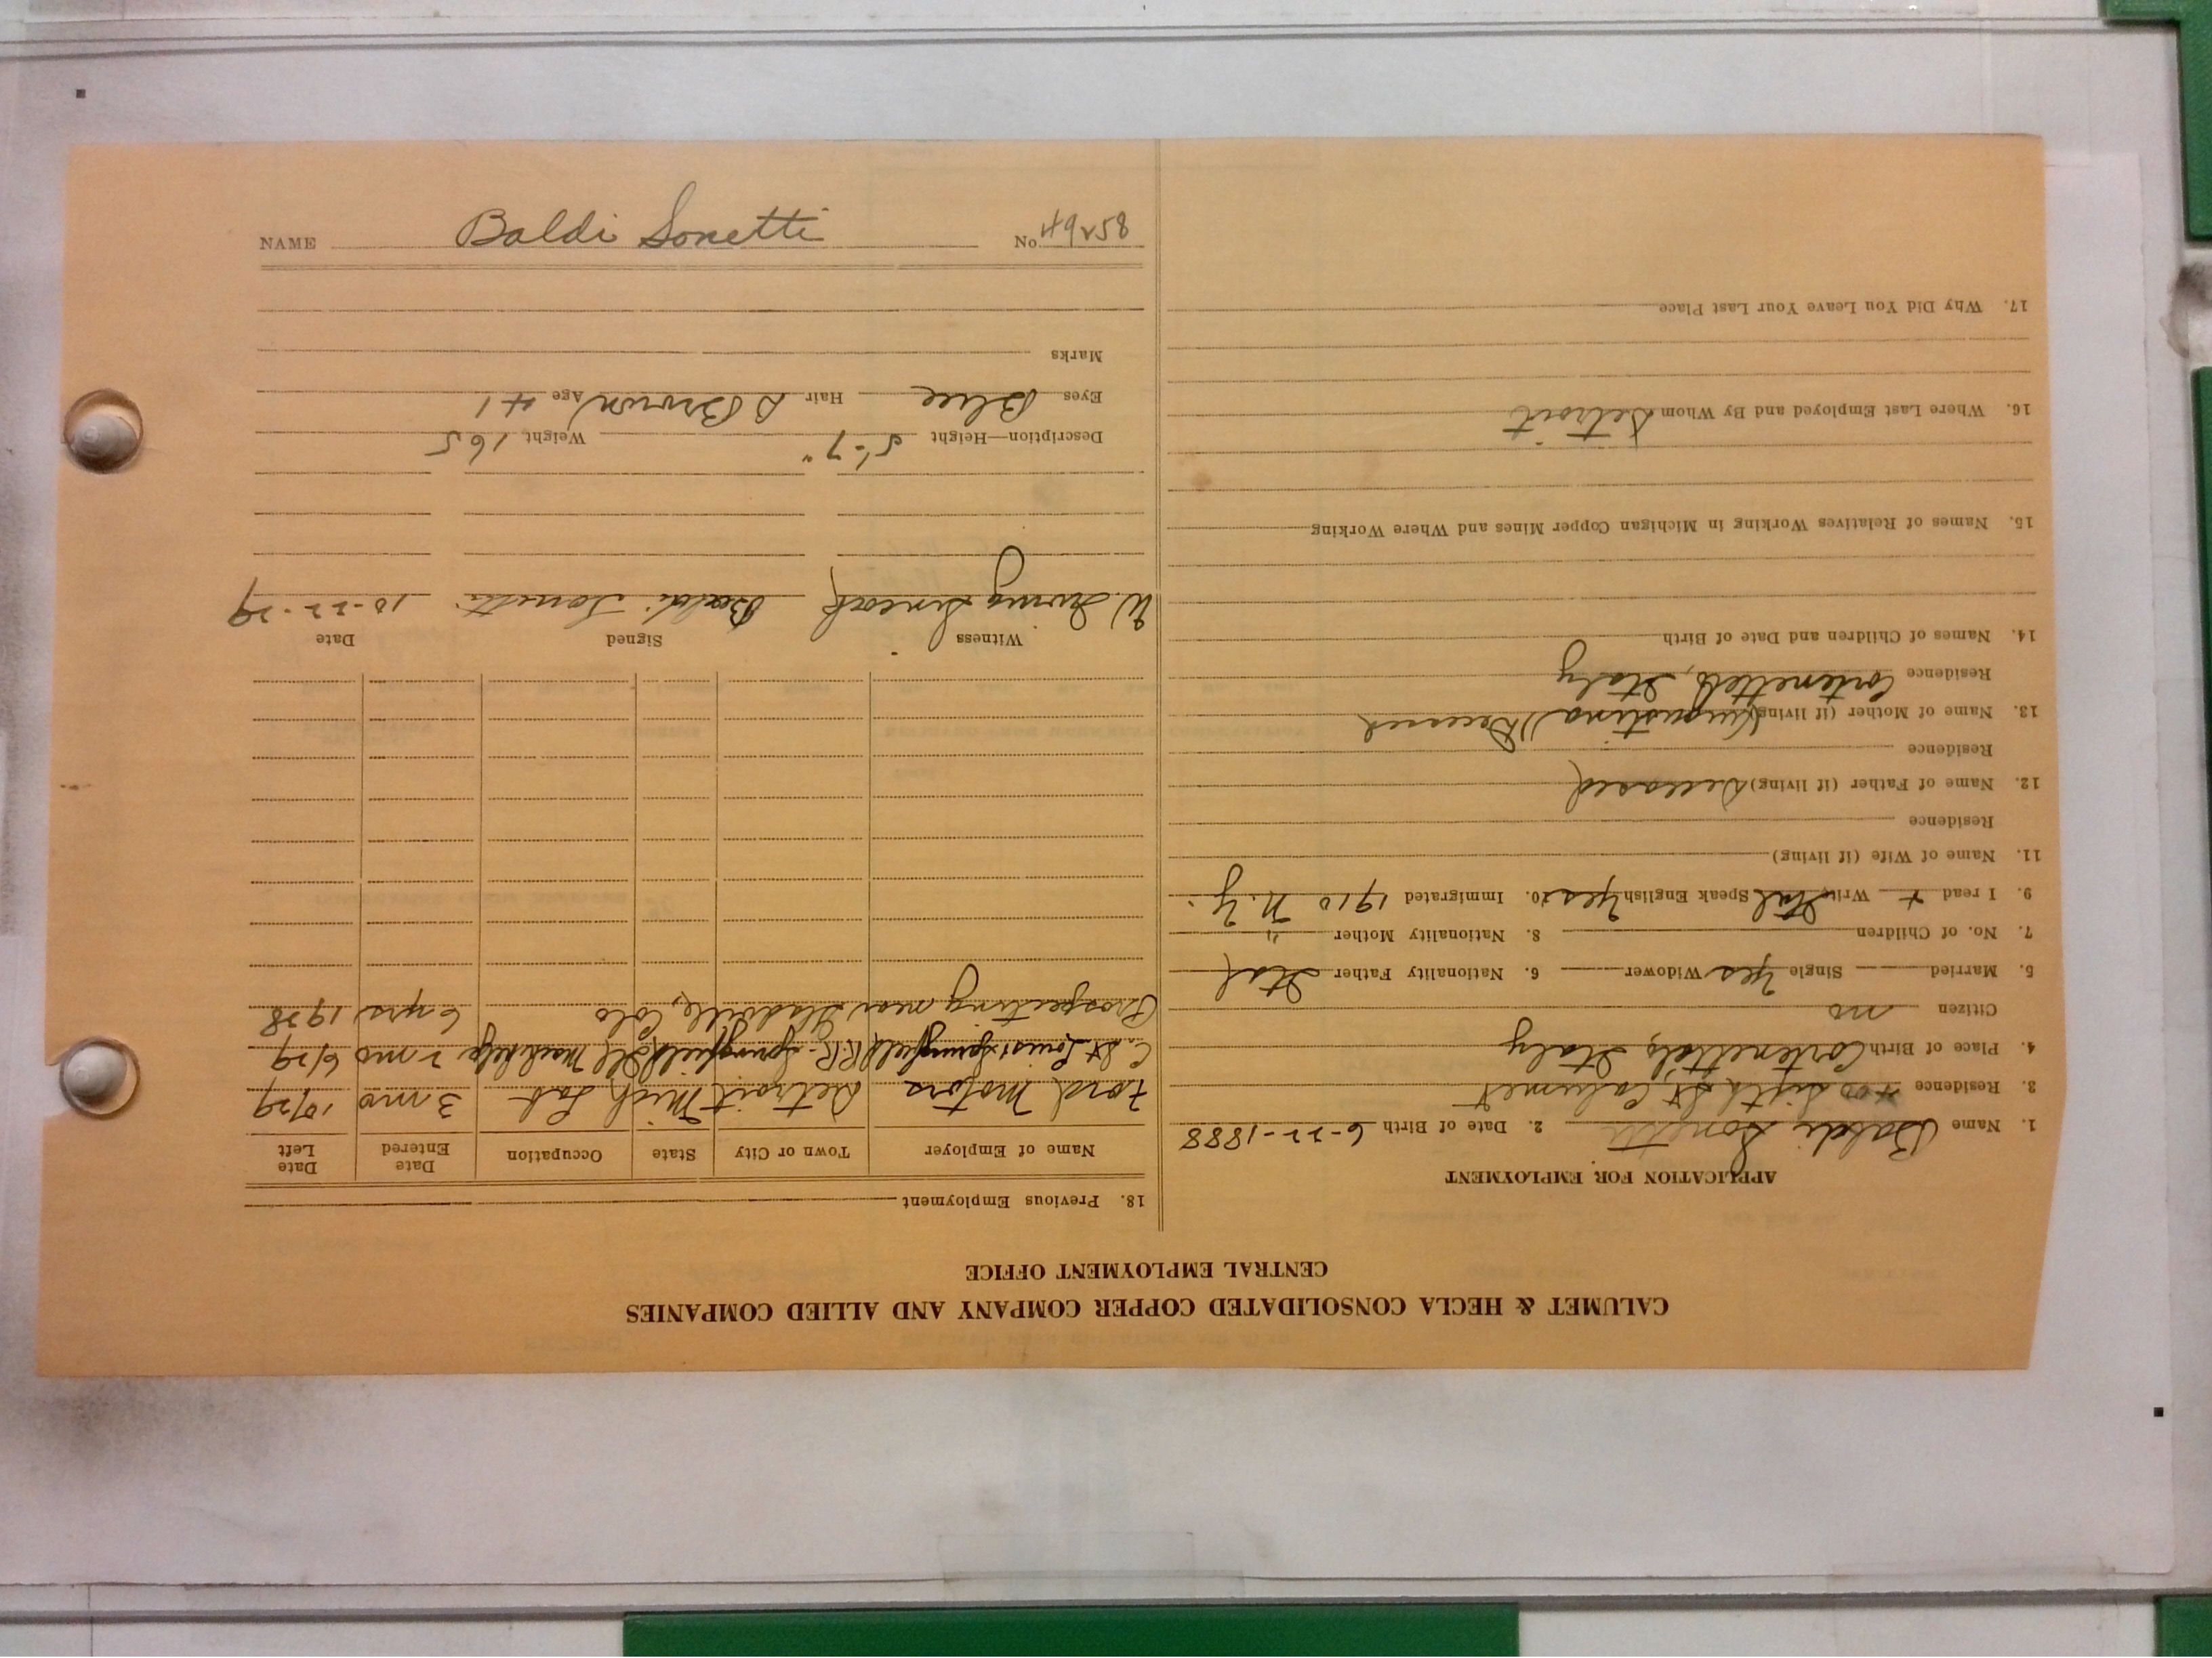 CALUMET & HECLA CONSOLIDATED COPPER COMPANY AND ALLIED COMPANIES
CENTRAL EMPLOYMENT OFFICE
APPLICATION FOR EMPLOYMENT
1. Name Baldi Sonetti 2. Date of Birth 6-22-1888
3. Residence 400 Sixth St Calumet
4. Place of Birth Italy
Citizen no
5. Married Single Yes Widower 6. Nationality Father Ital
7. No. of Children 8. Nationality Mother "
9. I read + Write Ital Speak English Yes 10. Immigrated 1910 N.Y.
11. Name of Wife (if living)
Residence
12. Name of Father (if living) Deceased
Residence
13. Name of Mother (if living) Deceased
Residence Italy
14. Names of Children and Date of Birth
15. Names of Relatives Working in Michigan Copper Mines and Where Working
16. Where Last Employed and By Whom Detroit
17. Why Did You Leave Your Last Place
18. Previous Employment
Name of Employer Town or City State Occupation Date Entered Date Left
Ford Motors Detroit Mich Lab 3 mo 10/29
C. St Louis & Springfield RR. Springfield Ill Mach help 2 mo 6/29
Prospecting near Leadville, Colo 6 yrs 1928
Witness Signed Date
W. Irving Baldi Sonetti 10-22-29
Description—Height 5'-7" Weight 165
Eyes Blue Hair D Brown Age 41
Marks
NAME Baldi Sonetti No. 49258